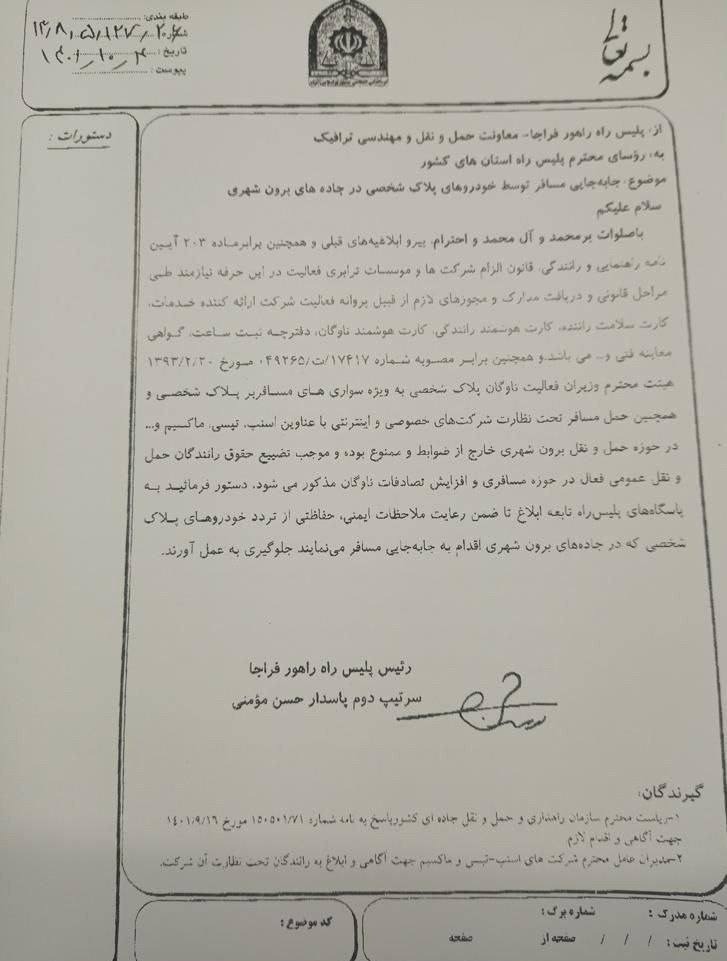 بسمه تعالی
طبقه بندی:
شماره
تاریخ: ۱۴۰۱/۱۰/۴
پیوست:
دستورات:
از: پلیس راه راهور فراجا- معاونت حمل و نقل و مهندسی ترافیک
به: رؤسای محترم پلیس راه استان های کشور
موضوع: جابه‌جایی مسافر توسط خودروهای پلاک شخصی در جاده های برون شهری
سلام علیکم
باصلوات برمحمد و آل محمد و احترام، پیرو ابلاغیه‌های قبلی و همچنین برابرماده ۲۰۳ آیین
نامه راهنمایی و رانندگی، قانون الزام شرکت ها و موسسات ترابری فعالیت در این حرفه نیازمند طی
مراحل قانونی و دریافت مدارک و مجوزهای لازم از قبیل پروانه فعالیت شرکت ارائه کننده خدمات،
کارت سلامت راننده، کارت هوشمند رانندگی، کارت هوشمند ناوگان، دفترچه ثبت ساعت، گواهی
معاینه فنی و... می باشد.و همچنین برابر مصوبه شماره ۱۷۴۱۷/ت/۰۴۹۲۶۵ مورخ ۱۳۹۳/۲/۲۰
هیئت محترم وزیران فعالیت ناوگان پلاک شخصی به ویژه سواری های مسافربر پلاک شخصی و
همچنین حمل مسافر تحت نظارت شرکت‌های خصوصی و اینترنتی با عناوین اسنپ، تپسی، ماکسیم و...
در حوزه حمل و نقل برون شهری خارج از ضوابط و ممنوع بوده و موجب تضییع حقوق رانندگان حمل
و نقل عمومی فعال در حوزه مسافری و افزایش تصادفات ناوگان مذکور می شود، دستور فرمائید به
پاسگاه‌های پلیس‌راه تابعه ابلاغ تا ضمن رعایت ملاحظات ایمنی، حفاظتی از تردد خودروهای پلاک
شخصی که در جاده‌های برون شهری اقدام به جابه‌جایی مسافر می‌نمایند جلوگیری به عمل آورند.
رئیس پلیس راه راهور فراجا
سرتیپ دوم پاسدار حسن مؤمنی
گیرندگان:
۱-ریاست محترم سازمان راهداری و حمل و نقل جاده ای کشورپاسخ به نامه شماره ۱۵۰۵۰۱/۷۱ مورخ ۱۴۰۱/۹/۱۶
جهت آگاهی و اقدام لازم
۲-مدیران عامل محترم شرکت های اسنپ-تپس و ماکسیم جهت آگاهی و ابلاغ به رانندگان تحت نظارت آن شرکت.
شماره مدرک : شماره برگ : کد موضوع :
تاریخ ثبت : / / / صفحه از صفحه